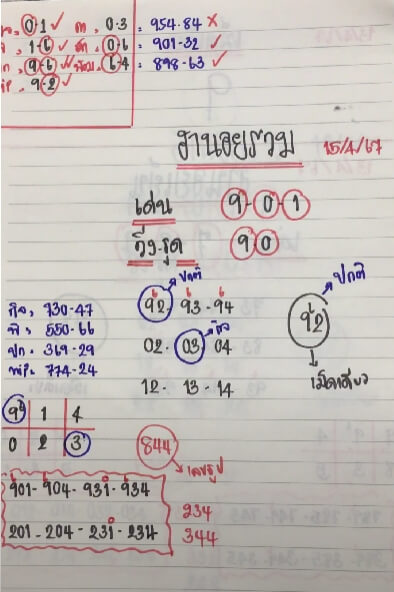 0-1 ✓ ต. 0-3 : 954-84 ✗
1-6 ✓ 0-6 : 901-32 ✓
9-6 ✓ 6-4 : 898-63 ✓
พิเศษ. 9-2 ✓
ฮานอยรวม 15/4/67
เด่น 9-0-1
วิ่ง-รูด 9 0
ปกติ
92-93-94
กิจ. 730-47
พิ. 550-66
ปก. 369-29
พัฒ. 774-24
02-03-04
12-13-14
ปกติ
92
เม็ดเดียว
9 1 4
0 2 3
844
เลขธูป
901-904-931-934
201-204-231-234
234
344